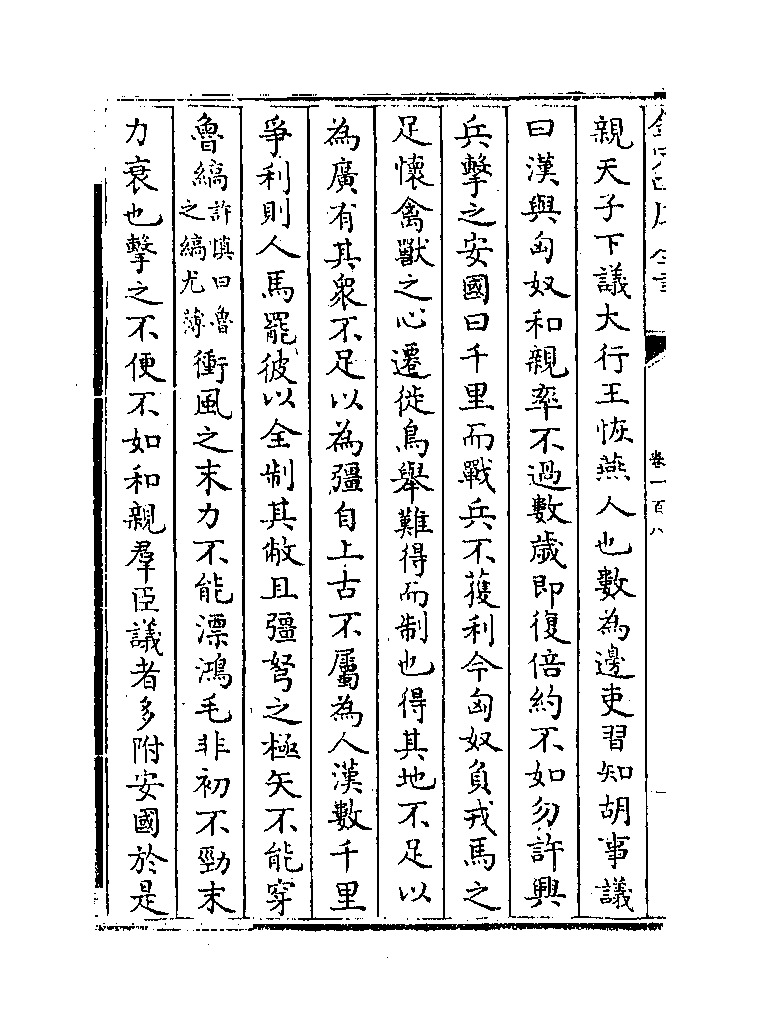 親天子下議大行王恢燕人也數為邊吏習知胡事議
曰漢與匈奴和親率不過數歲即復倍約不如勿許興
兵擊之安國曰千里而戰兵不獲利今匈奴負戎馬之
足懷禽獸之心遷徙鳥舉難得而制也得其地不足以
為廣有其衆不足以為彊自上古不屬為人漢數千里
爭利則人馬罷彼以全制其敝且彊弩之極矢不能穿
魯縞許慎曰魯之縞尤薄衝風之末力不能漂鴻毛非初不勁末
力衰也擊之不便不如和親羣臣議者多附安國於是
卷一百八